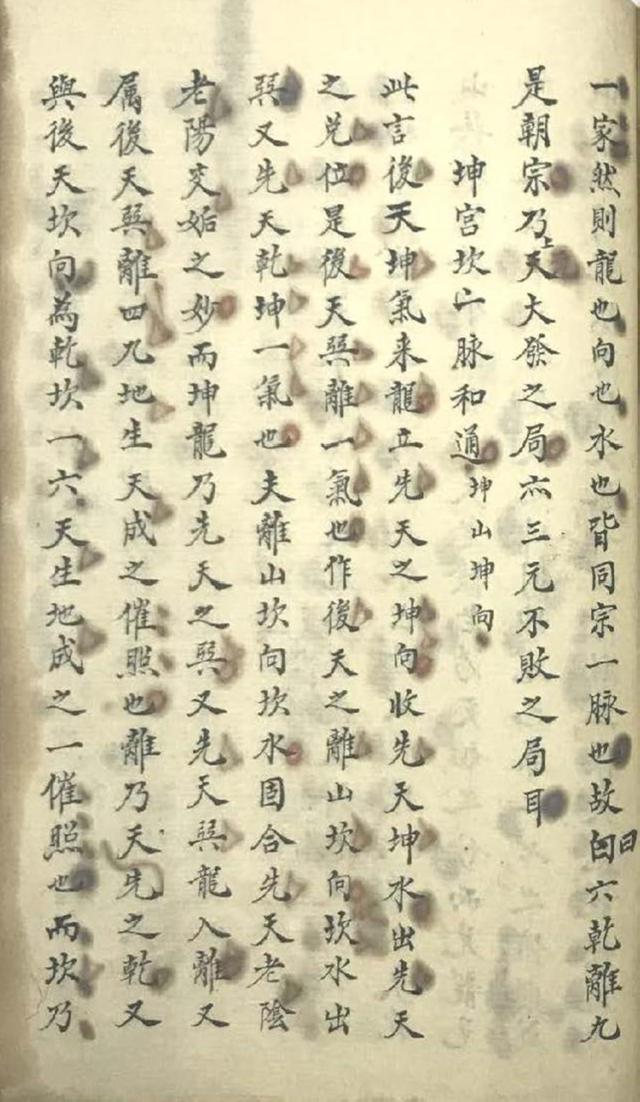 一家然則龍也向也水也皆同宗一脉也故曰六乾離九
是朝宗乃上天大發之局亦三元不敗之局耳
坤宫坎亡脉和通 坤山坤向
此言後天坤氣来龍立先天之坤向收先天坤水出先天
之兑位是後天巽離一氣也作後天之離山坎向坎水出
巽又先天乾坤一氣也夫離山坎向坎水固合先天老陰
老陽交姤之妙而坤龍乃先天之巽又先天巽龍入離又
属後天巽離四九地生天成之催照也離乃天先之乾又
與後天坎向為乾坎一六天生地成之一催照也而坎乃